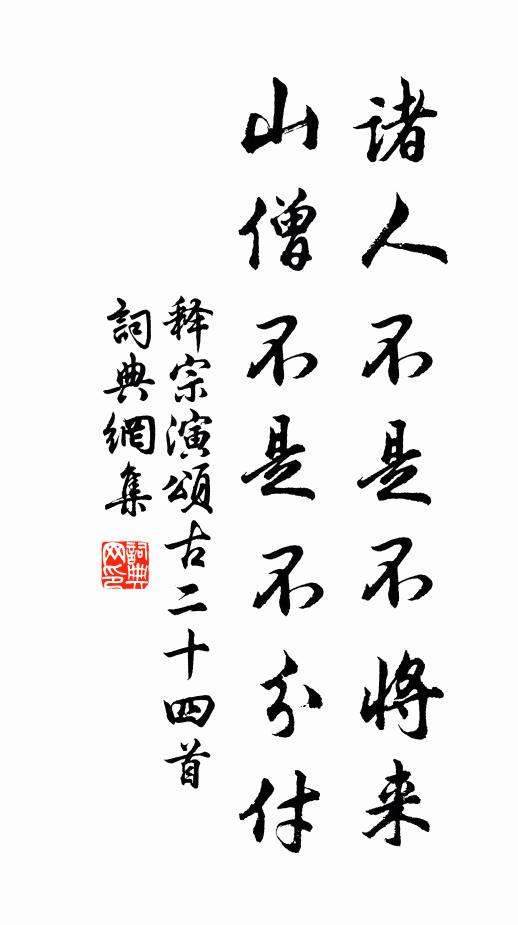 诸人不是不将来
山僧不是不分付
释宗演颂古二十四首
詞典網集
詞典
网印